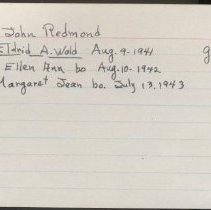 John Redmond
Eldrid A. Wold Aug. 9-1941 g
Ellen Ann bo Aug. 10-1942
Margaret Jean bo. July 13, 1943